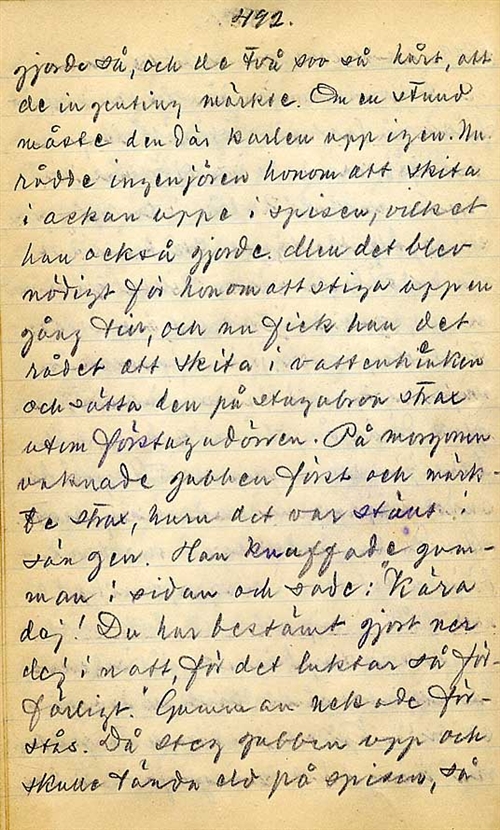 492.
gjorde så, och de två sov så hårt, att
de ingenting märkte. Om en stund
måste den där karlen upp igen. Nu
rådde ingenjören honom att skita
i askan uppe i spisen, vilket
han också gjorde. Men det blev
nödigt för honom att stiga upp en
gång till, och nu fick han det
rådet att skita i vattenhinken
och sätta den på stugubron strax
utom förstugudörren. På morgonen
vaknade gubben först och märk-
te strax, huru det var ställt i
sängen. Han knuffade gum-
man i sidan och sade: "Kära
dej! Du har bestämt gjort ner
dej i natt, för det luktar så för-
färligt." Gumman nekade för-
stås. Då steg gubben upp och
skulle tända eld på spisen, så